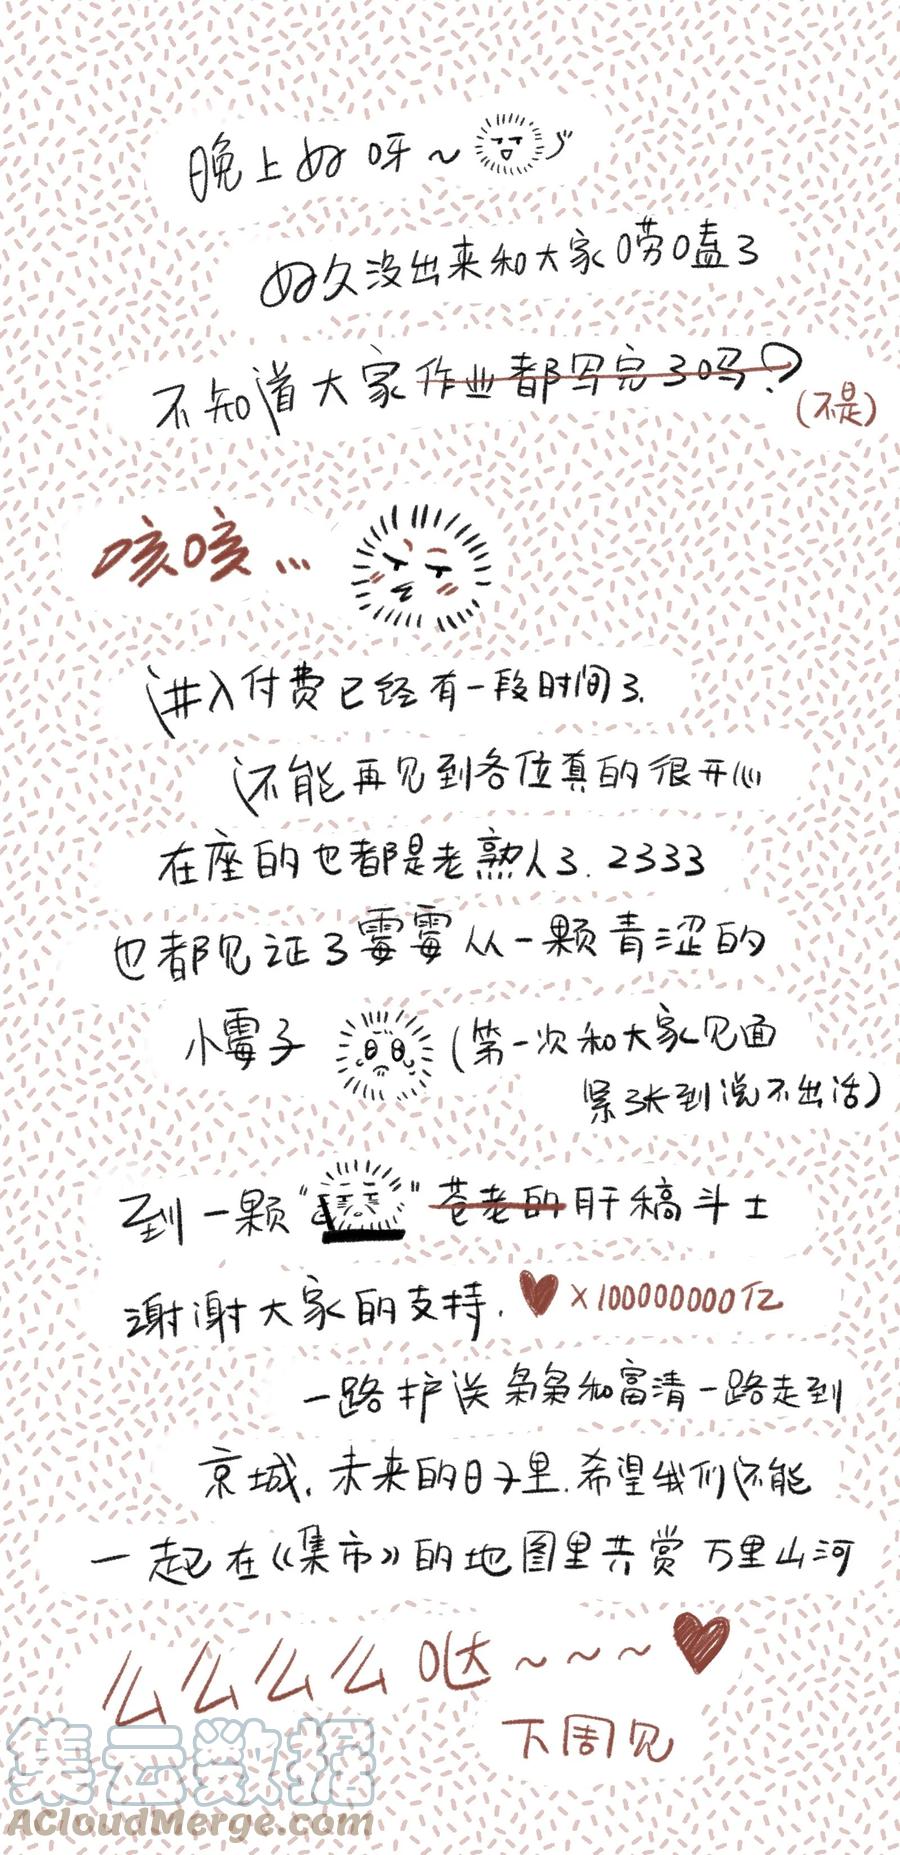 晚上好呀~
好久没出来和大家唠嗑了
不知道大家作业都写完了吗?
(不是)
咳咳...
进入付费已经有一段时间了.
还能再见到各位真的很开心
在座的也都是老熟人了.2333
也都见证了霉霉从一颗青涩的
小霉子(第一次和大家见面
紧张到说不出话)
到一颗“ ”苍老的肝稿斗士
谢谢大家的支持.
×100000000亿
一路护送枭枭和富清一路走到
京城.未来的日子里.希望我们还能
一起在《集市》的地图里共赏万里山河
么么么么哒~~~
下周见
集云数据
ACloudMerge.com